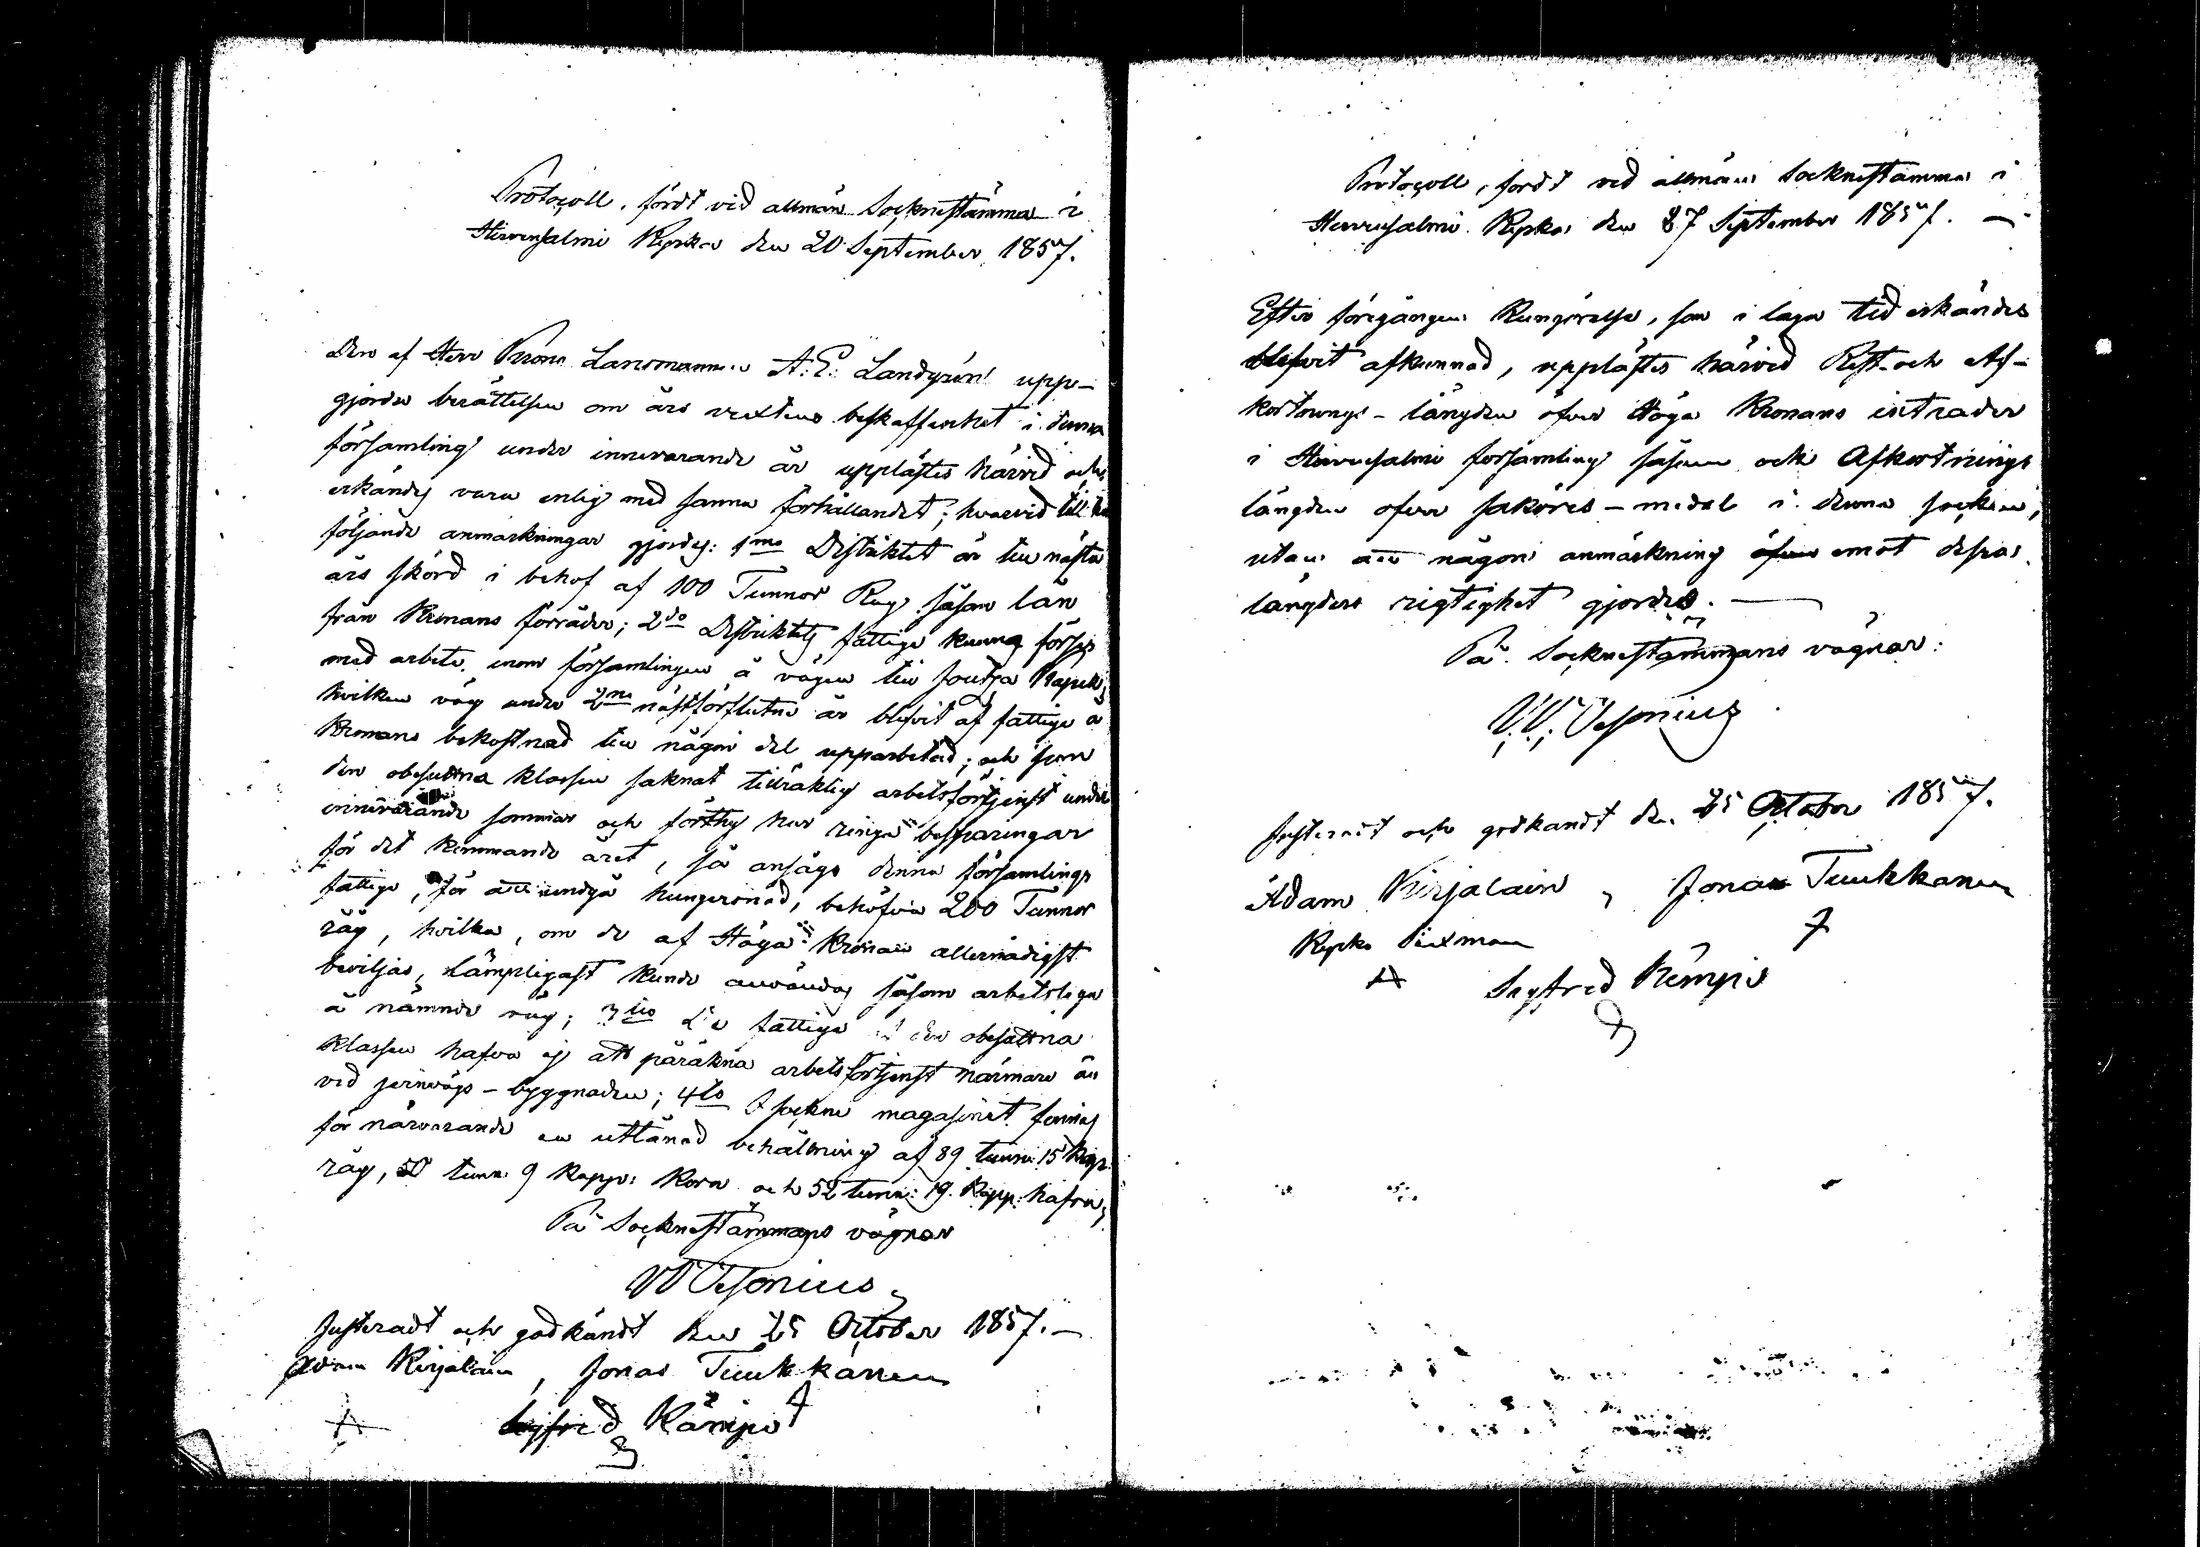 Protocoll, fördt vid allmän Socknestämma i
Hirvensalmi Kyrka den 20 September 1857.
Den af Herr Krono Länsmannen A. E. Landgrén upp-
gjorda berättelsen om års vextens beskaffenhet i denna
församling under innevarande år upplästes härvid och
erkändes vara enlig med sanna förhållandet; hvarvid
följande anmärkningar gjordes: 1mo Distriktet är till nästa
års skörd i behof af 100 Tunnor Råg såsom lån
från Kronans förråder; 2do Distriktets fattige kunna förses
med arbete inom församlingen å vägen till Joutsa Kapell,
hvilken väg under 2ne nästförflutne år blifvit af fattige å
Kronans bekostnad till någon del upparbetad; och som
den obesuttna klassen saknat tillräklig arbetsförtjenst under
innevarande sommar och förthy har ringa besparingar
för det kommande året, så ansågs denna församlings
fattige, för att undgå hungersnöd, behöfva 200 Tunnor
råg, hvilka, om de af Höga Kronan allernådigst
beviljas, lämpligast kunde användas såsom arbetslega
å nämnde väg; 3tio De fattige af den obesuttna
klassen hafva ej att påräkna arbetsförtjenst närmare än
vid jernvägs-byggnaden; 4to I sockne magasinet finnes
för närvarande en utlånad behållning af 89 tunn: 15 kapp:
råg, 50 tunn: 9 kapp: korn och 52 tunn: 19 kapp: hafra,
På Sockne stämmans vägnar
W Wesonius
Justeradt och godkändt den 25 October 1857.
Adam Kirjalain, Jonas Tuukkanen
Sigfred Kämpi
Protocoll, fördt vid allmän Socknestämma i
Hirvensalmi Kyrka den 27 September 1857.
Efter föregången Kungörelse, som i laga tid erkändes
blifvit afkunnad, upplästes härvid Rest- och Af-
kortnings-längden öfver Höga Kronans intrader
i Hirvensalmi församling såsom ock Afkortnings
längden öfver saköres-medel i denna socken,
utan att någon anmärkning emot dessa
längders rigtighet gjordes.
På Sockne stämmans vägnar:
W. Wesonius
Justeradt och godkändt den 25 October 1857.
Adam Kirjalain, Jonas Tuukkanen
Kyrko
Sigfred Kämpi